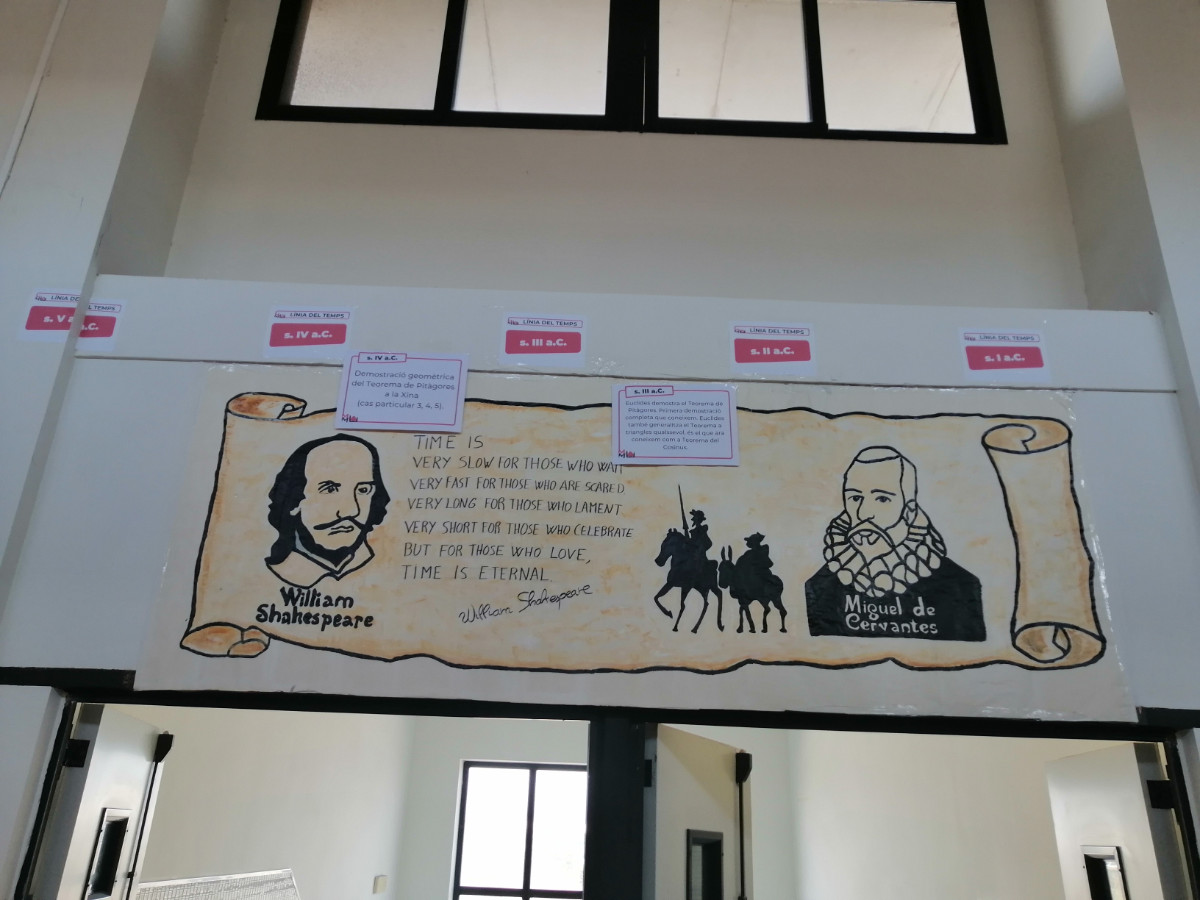 LÍNIA DEL TEMPS
s. V a.C.
LÍNIA DEL TEMPS
s. IV a.C.
LÍNIA DEL TEMPS
s. III a.C.
LÍNIA DEL TEMPS
s. II a.C.
LÍNIA DEL TEMPS
s. I a.C.
s. IV a.C.
Demostració geomètrica
del Teorema de Pitàgores
a la Xina
(cas particular 3, 4, 5).
s. III a.C.
Euclides demostra el Teorema de
Pitàgores. Primera demostració
completa que coneixem. Euclides
també generalitza el Teorema a
triangles qualssevol, és el que ara
coneixem com a Teorema del
Cosinus.
TIME IS
VERY SLOW FOR THOSE WHO WAIT
VERY FAST FOR THOSE WHO ARE SCARED
VERY LONG FOR THOSE WHO LAMENT
VERY SHORT FOR THOSE WHO CELEBRATE
BUT FOR THOSE WHO LOVE,
TIME IS ETERNAL.
William Shakespeare
William
Shakespeare
Miguel de
Cervantes